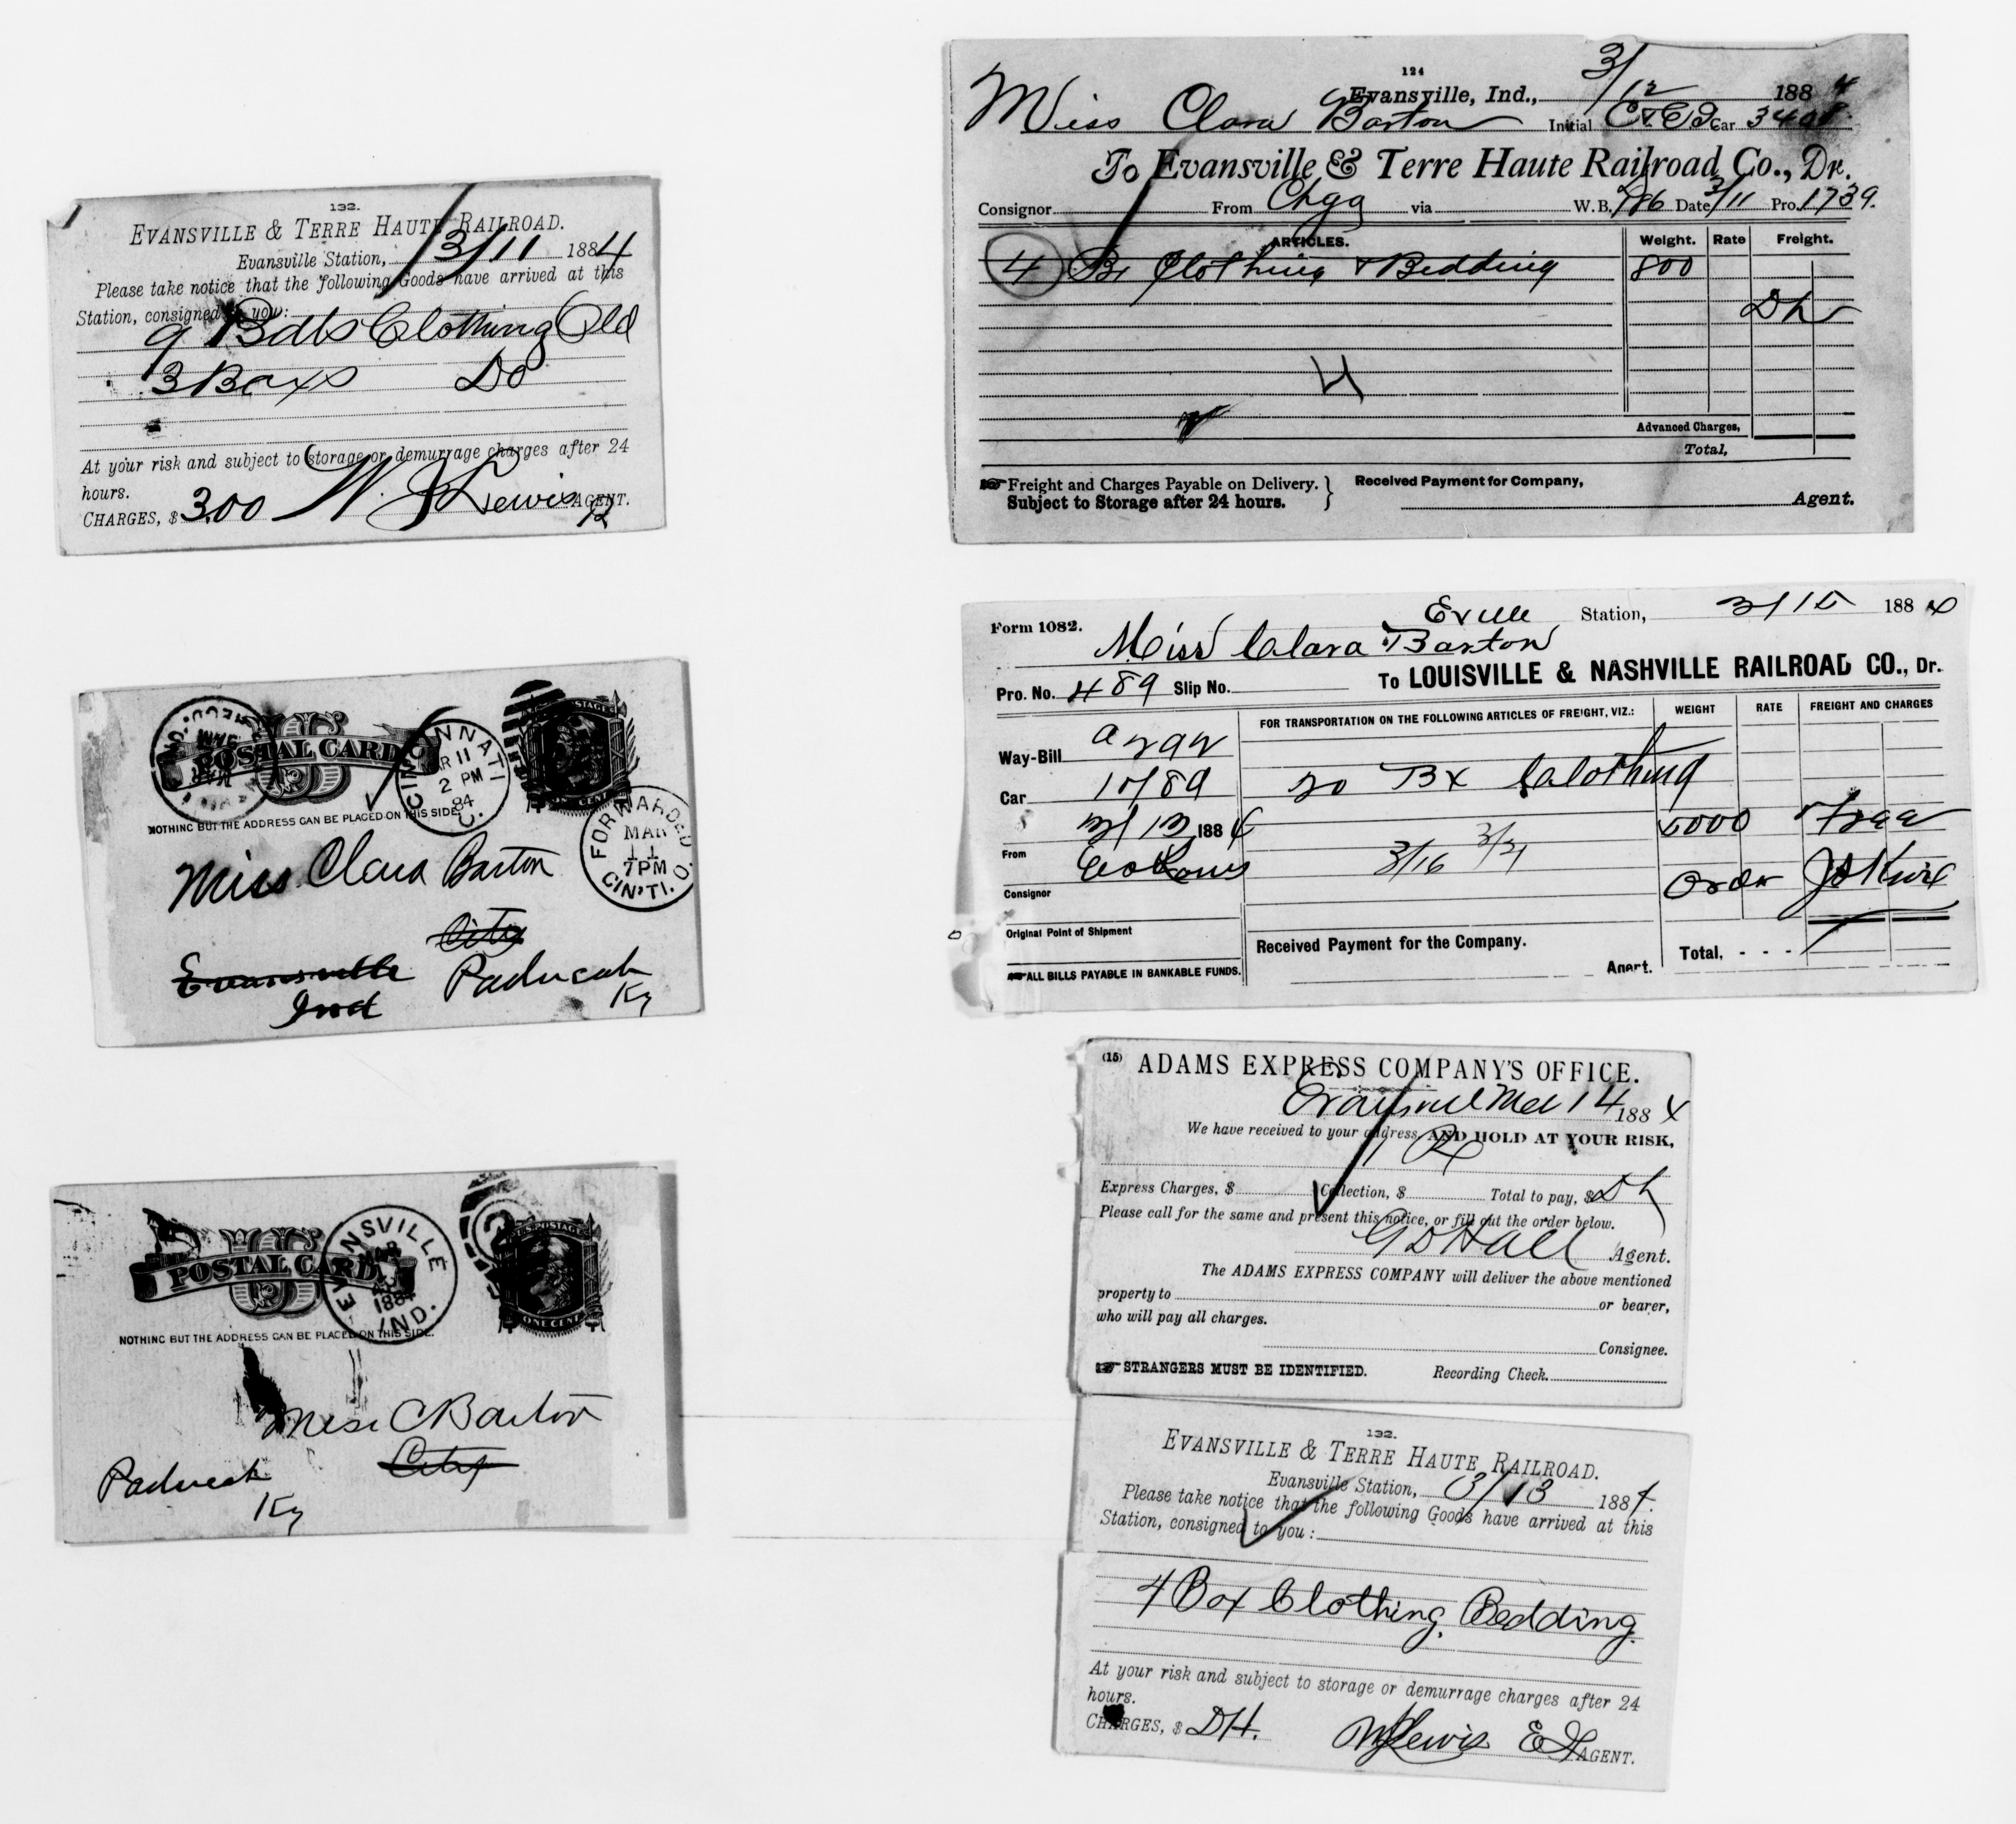 132.
EVANSVILLE & TERRE HAUTE RAILROAD.
Evansville Station, 3/11 1884
Please take notice that the following Goods have arrived at this
Station, consigned to you:
9 Bdls Clothing Old
3 Boxs Do
At your risk and subject to storage or demurrage charges after 24
hours.
CHARGES, $ 3.00 W. J Lewis AGENT.
POSTAL CARD
CINCINNATI
MAR 11
2 PM
84
NOTHING BUT THE ADDRESS CAN BE PLACED ON THIS SIDE
ONE CENT
FORWARDED
MAR
11
7PM
CIN'TI. O.
Miss Clara Barton
City
Evansville Paducah
Ind Ky
POSTAL CARD
EVANSVILLE
MAR
1884
IND.
ONE CENT
NOTHING BUT THE ADDRESS CAN BE PLACED ON THIS SIDE.
Miss C Barton
City
Paducah
Ky
124
Evansville, Ind., 3/12 1884
Miss Clara Barton Initial Car 3408
To Evansville & Terre Haute Railroad Co., Dr.
Consignor From Chgg via W.B. 786 Date 3/11 Pro. 1739.
ARTICLES. Weight. Rate Freight.
4 Bx Clothing & Bedding 800
Dh
4
Advanced Charges,
Total,
Freight and Charges Payable on Delivery.
Subject to Storage after 24 hours.
Received Payment for Company,
Agent.
Form 1082. Eville Station, 3/15 1884
Miss Clara Barton
Pro. No. 489 Slip No. To LOUISVILLE & NASHVILLE RAILROAD CO., Dr.
FOR TRANSPORTATION ON THE FOLLOWING ARTICLES OF FREIGHT, VIZ.: WEIGHT RATE FREIGHT AND CHARGES
Way-Bill
Car 20 Bx Clothing
3/13 1884 5000 Free
From 3/16 3/21
Consignor Order
Original Point of Shipment
Received Payment for the Company. Total, - - -
ALL BILLS PAYABLE IN BANKABLE FUNDS. Agent.
(15) ADAMS EXPRESS COMPANY'S OFFICE.
Mch 14 1884
We have received to your address, AND HOLD AT YOUR RISK,
1 Bx
Express Charges, $ Collection, $ Total to pay, $ Dh
Please call for the same and present this notice, or fill out the order below.
G D Hall Agent.
The ADAMS EXPRESS COMPANY will deliver the above mentioned
property to or bearer,
who will pay all charges.
Consignee.
STRANGERS MUST BE IDENTIFIED. Recording Check.
132.
EVANSVILLE & TERRE HAUTE RAILROAD.
Evansville Station, 3/13 1884.
Please take notice that the following Goods have arrived at this
Station, consigned to you:
4 Box Clothing, Bedding.
At your risk and subject to storage or demurrage charges after 24
hours.
CHARGES, $ DH. WJ Lewis AGENT.